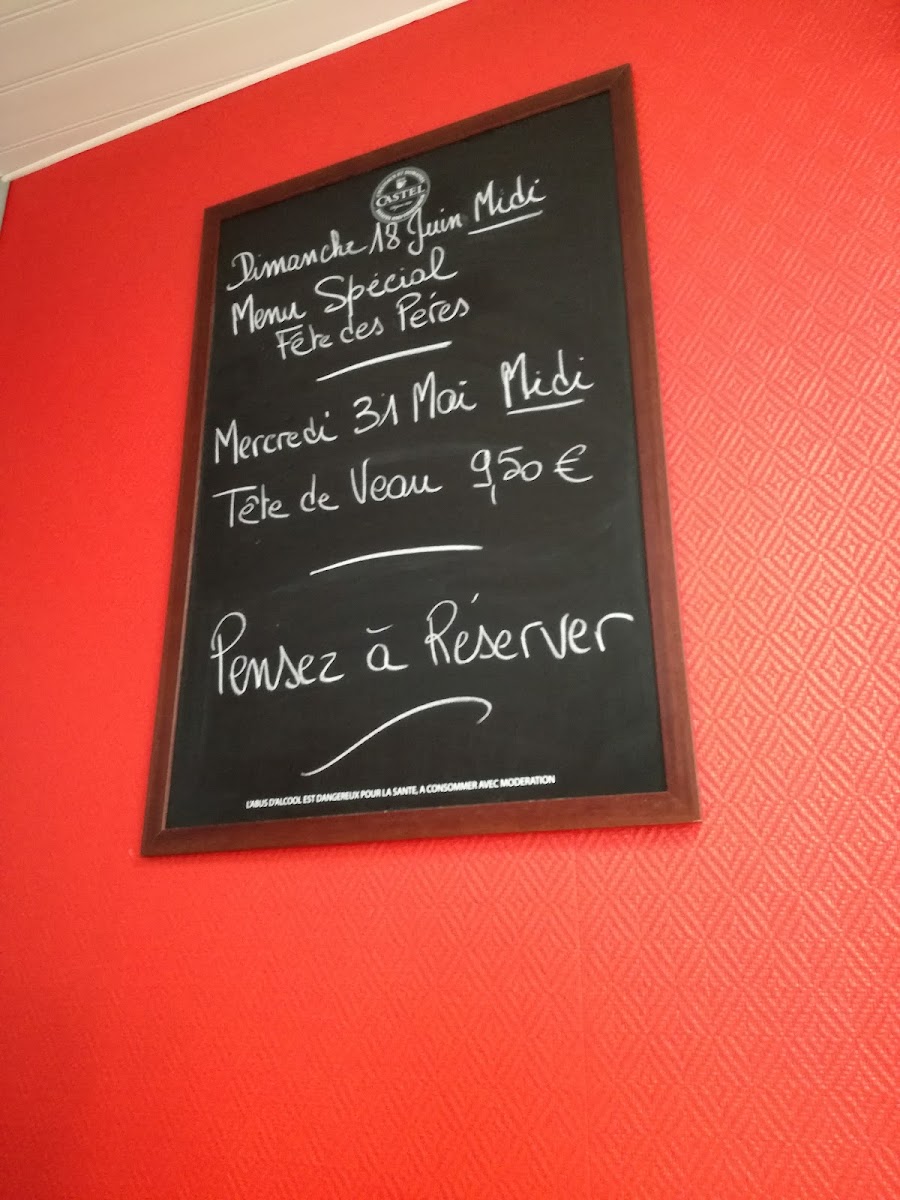 CASTEL
Dimanche 18 Juin Midi
Menu Spécial
Fête des Péres
Mercredi 31 Mai Midi
Tête de Veau 9,50 €
Pensez à Réserver
L'ABUS D'ALCOOL EST DANGEREUX POUR LA SANTE, A CONSOMMER AVEC MODERATION